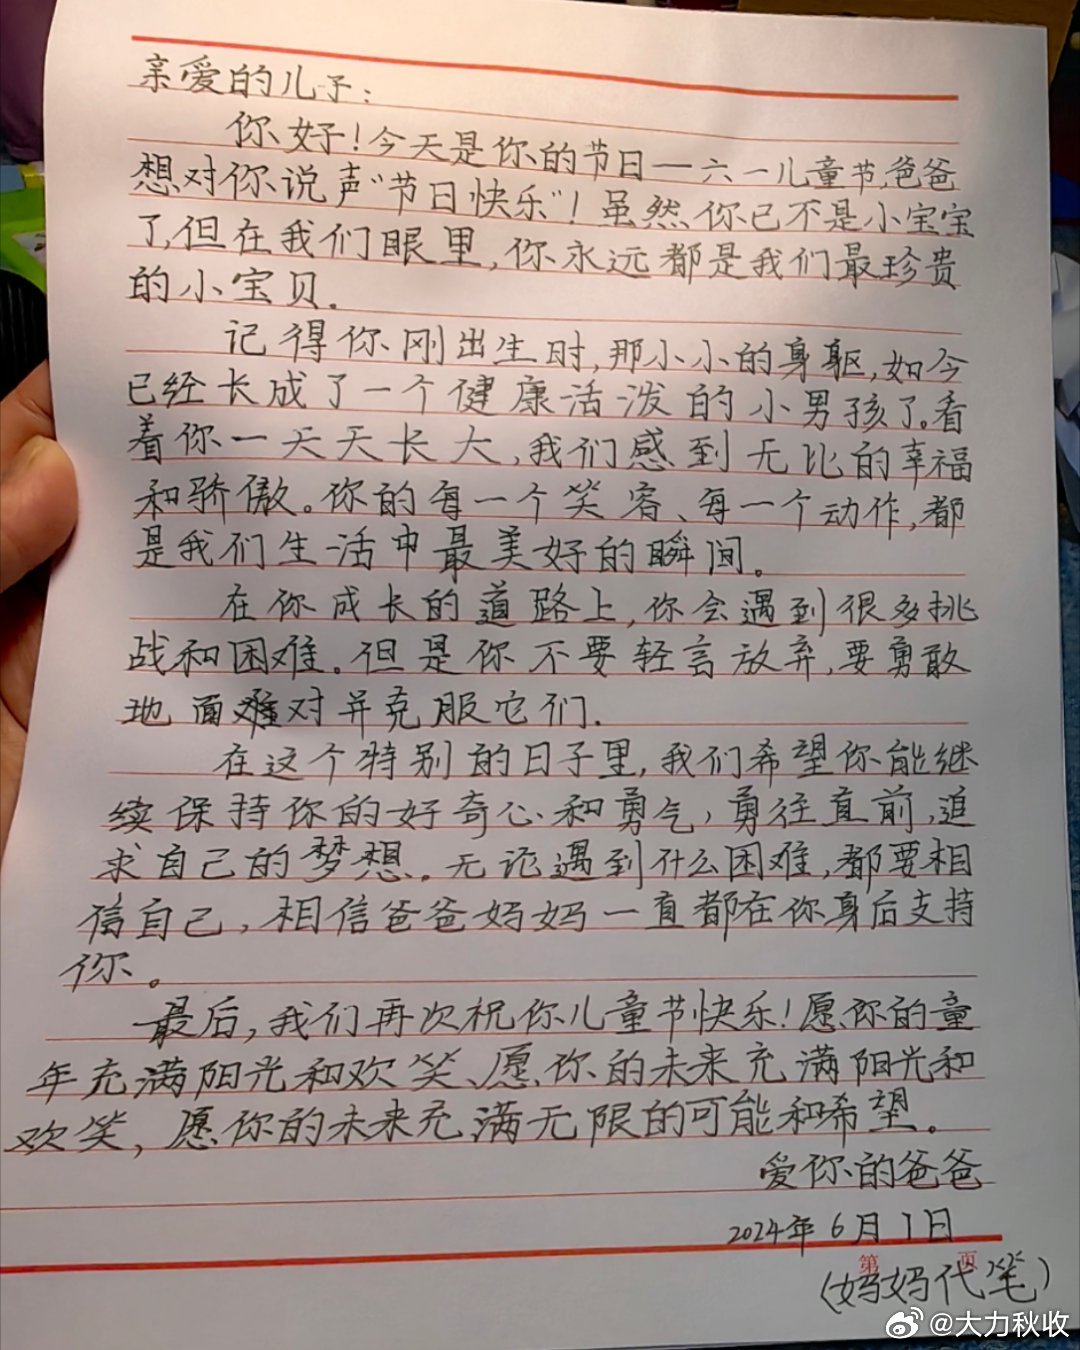 亲爱的儿子：
你好！今天是你的节日一六一儿童节,爸爸
想对你说声“节日快乐”！虽然你已不是小宝宝
了,但在我们眼里,你永远都是我们最珍贵
的小宝贝.
记得你刚出生时,那小小的身躯,如今
已经长成了一个健康活泼的小男孩了.看
着你一天天长大,我们感到无比的幸福
和骄傲。你的每一个笑容、每一个动作,都
是我们生活中最美好的瞬间。
在你成长的道路上,你会遇到很多挑
战和困难.但是你不要轻言放弃,要勇敢
地面对并克服它们.
在这个特别的日子里,我们希望你能继
续保持你的好奇心和勇气,勇往直前,追
求自己的梦想.无论遇到什么困难,都要相
信自己,相信爸爸妈妈一直都在你身后支持
你。
最后,我们再次祝你儿童节快乐!愿你的童
年充满阳光和欢笑、愿你的未来充满阳光和
欢笑,愿你的未来充满无限的可能和希望。
爱你的爸爸
2024年6月1日
第 页
(妈妈代笔)
@大力秋收